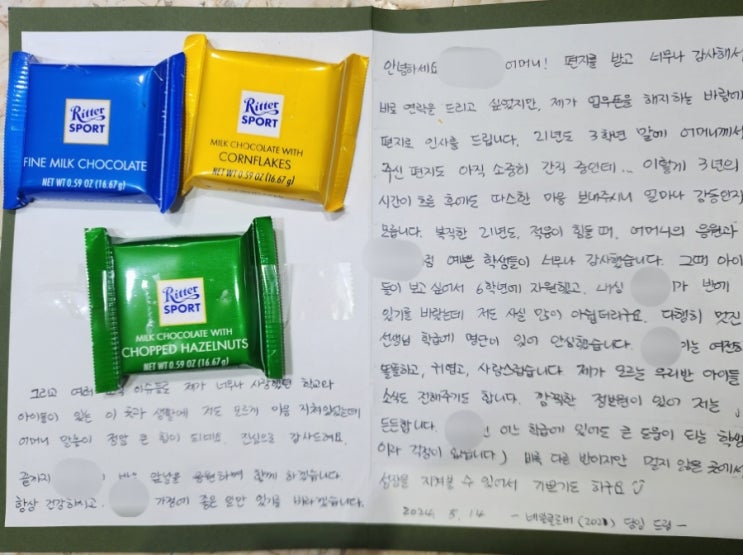 Ritter
SPORT
FINE MILK CHOCOLATE
NET WT 0.59 OZ (16.67 g)
Ritter
SPORT
MILK CHOCOLATE WITH
CORNFLAKES
NET WT 0.59 OZ (16.67 g)
Ritter
SPORT
MILK CHOCOLATE WITH
CHOPPED HAZELNUTS
NET WT 0.59 OZ (16.67 g)
안녕하세요 어머니! 편지를 받고 너무나 감사해서
바로 연락을 드리고 싶었지만, 제가 업무폰을 해지하는 바람에
편지로 인사를 드립니다. 21년도 3학년 말에 어머니께서
주신 편지도 아직 소중히 간직 중인데... 이렇게 3년의
시간이 흐른 후에도 따스한 마음 보내주시니 얼마나 감동인지
모릅니다. 복직한 21년도, 적응이 힘들 때, 어머니의 응원과
예쁜 학생들이 너무나 감사했습니다. 그때 아이
들이 보고 싶어서 6학년에 자원했고, 내심 가 반에
있기를 바랐는데 저도 사실 많이 아쉽더라구요. 다행히 멋진
선생님 학급에 명단이 있어 안심했습니다. 는 여전히
똘똘하고, 귀엽고, 사랑스럽습니다. 제가 모르는 우리반 아이들
소식도 전해주기도 합니다. 깜찍한 정보원이 있어 저는
든든합니다. 어느 학급에 있어도 큰 도움이 되는 학생
이라 걱정이 없습니다) 비록 다른 반이지만 멀지 않은 곳에서
성장을 지켜볼 수 있어서 기쁘기도 하구요
2024. 5. 14 - (2021) 담임 드림 -
그리고 여러 이슈들로 제가 너무나 사랑했던 학교와
아이들이 있는 이 곳과 생활에 저도 모르게 마음 지쳐있었는데
어머니 말씀이 정말 큰 힘이 되네요. 진심으로 감사드려요.
끝까지 앞날을 응원하며 함께 하겠습니다.
항상 건강하시고, 가정에 좋은 일만 있기를 바라겠습니다.